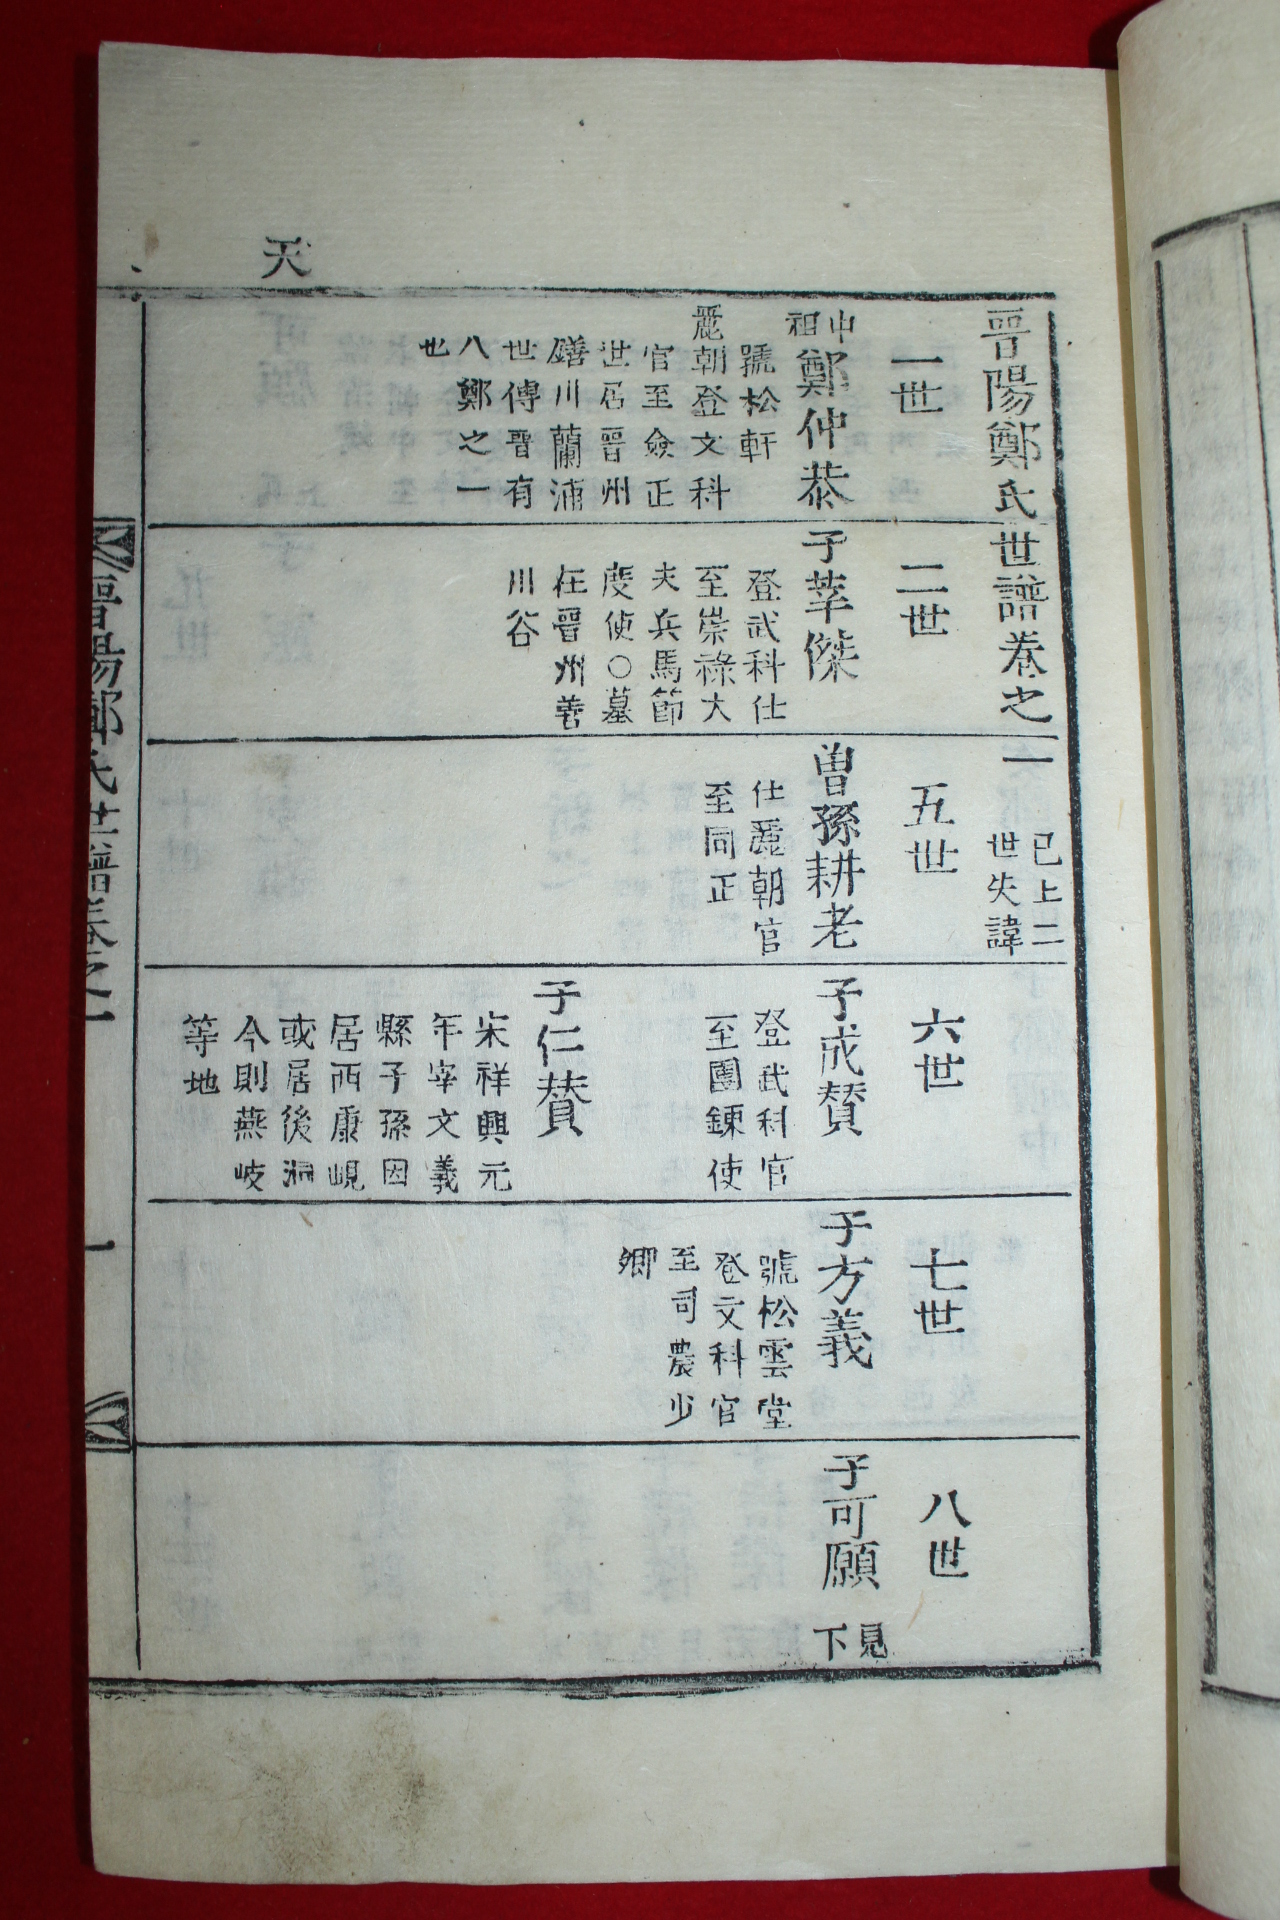 天
晉陽鄭氏世譜卷之一
已上二
世失諱
一世
中祖
鄭仲恭
號松軒
麗朝登文科
官至僉正
世居晉州
鐥川蘭浦
世傳晉有
八鄭之一
也
二世
子莘傑
登武科仕
至崇祿大
夫兵馬節
度使○墓
在晉州善
川谷
五世
曾孫耕老
仕麗朝官
至同正
六世
子成贊
登武科官
至團鍊使
子仁贊
宋祥興元
年宰文義
縣子孫因
居西康峴
或居後洞
今則燕岐
等地
七世
子方義
號松雲堂
登文科官
至司農少
卿
八世
子可願
見下
晉陽鄭氏世譜卷之一
一